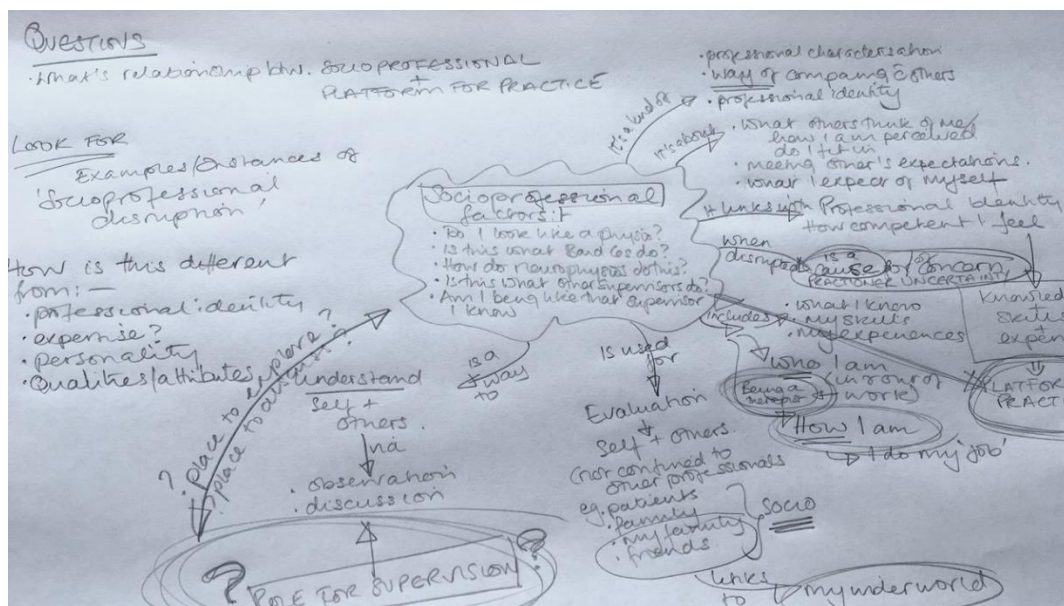 QUESTIONS
• What's relationship btw. SOCIOPROFESSIONAL
+
PLATFORM FOR PRACTICE
LOOK FOR
Examples/instances of
'Socioprofessional
disruption'
How is this different
from:—
• professional identity
• expertise?
• personality
• Qualities/attributes
? place to explore?
? place to discuss?
Socioprofessional
factors:
• Do I look like a physio?
• Is this what Band 6s do?
• How do neurophysios do this?
• Is this what other supervisors do?
• Am I being like that supervisor
I know
It's a kind of
• professional characterisation
• way of comparing c̄ others
• professional identity
It's about
• What others think of me/
how I am perceived
do I fit in
• meeting other's expectations.
• what I expect of myself
It links with Professional Identity
How competent I feel
when
disrupted
is a
cause for of concern,
PRACTIONER UNCERTAINTY
includes
• what I know
• my skills
• my experiences
Knowled
skills
+
PLATFOR
PRACTI
who I am
in front of
work
Being a
therapist
How I am
I do my 'job'
is a
way
to
understand
self +
others.
via
• observation
• discussion
? ROLE FOR SUPERVISION ?
Is used
for
Evaluation
self + others
(not confined to
other professionals
eg. patients
• family
• my family
• friends
SOCIO
links
to
my underworld